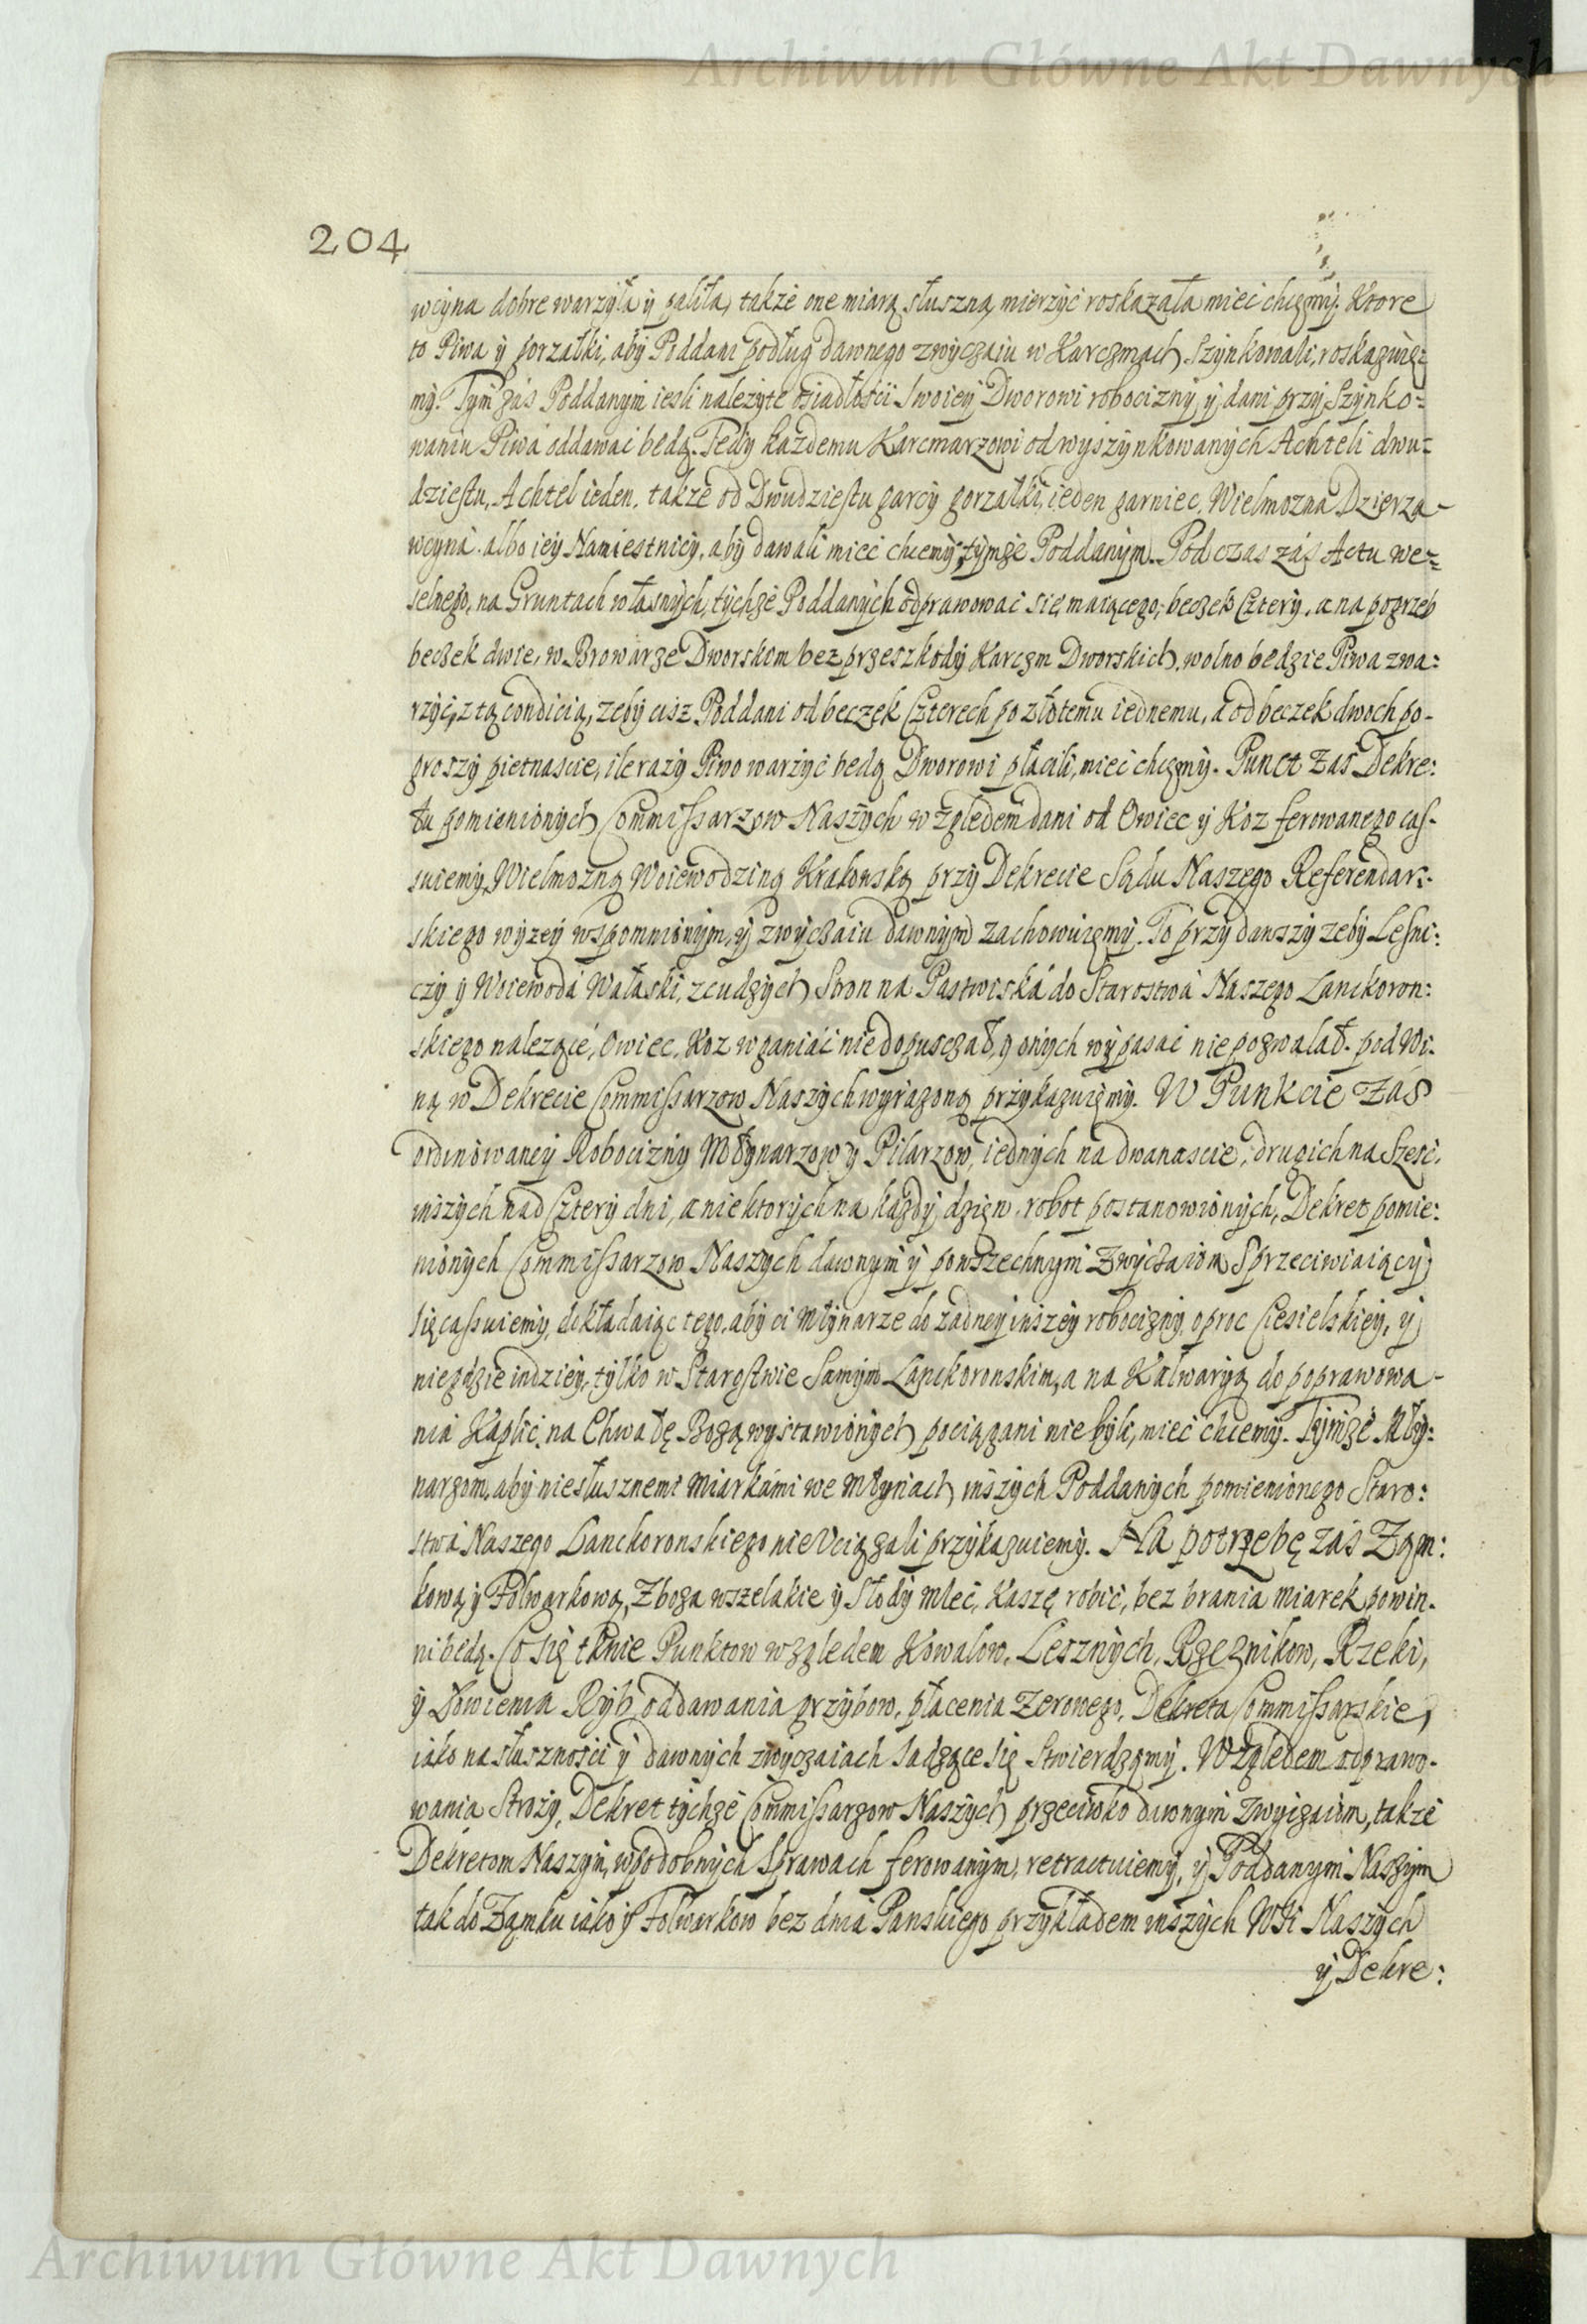 Archiwum Główne Akt Dawnych
204
wcyna dobre warzyła y paliła, także one miarą słuszną mierzyć roskazała mieć chcemy. Ktore
to Piwa y gorzałki, aby Poddani podług dawnego zwyczaiu w Karczmach Szynkowali, roskazuie=
my. Tym zaś Poddanym iesli należyte osiadłości swoiey Dworowi robocizny y dani przy Szynko=
waniu Piwa oddawać będą. Tedy każdemu Karcmarzowi od wyszynkowanych Achteli dwu=
dziestu, Achtel ieden, także od Dwudziestu garcy gorzałki, ieden garniec, Wielmożna Dzierza-
wcyna albo iey Namiestnicy, aby dawali mieć chcemy tymże Poddanym. Podczas zaś Actu we=
selnego, na Gruntach własnych tychże Poddanych odprawować się maiącego, beczek cztery, a na pogrzeb
beczek dwie, w Browarze Dworskom bez przeszkody Karczm Dworskich, wolno będzie Piwa zwa=
rzyć, z tą condicią, żeby ciż Poddani od beczek czterech po złotemu iednemu, a od beczek dwoch po-
groszy pietnascie, ile razy Piwo warzyć będą Dworowi płacili, mieć chcemy. Punct zaś Dekre:
tu pomienionych Commissarzow Naszych względem dani od Owiec y Koz ferowanego cas-
suiemy, Wielmożną Woiewodziną Krakowską przy Dekrecie Sądu Naszego Referendar:
skiego wyzey wspomnionym, y zwyczaiu dawnym zachowuiemy. To przydawszy żeby Leśni:
czy y Woiewoda Wałaski, z cudzych Stron na Pastwiska do Starostwa Naszego Lanckoron:
skiego nalezące, Owiec, Koz wganiać nie dopuszczał, y onych wypasać nie pozwalał. pod Wi-
ną w Dekrecie Commissarzow Naszych wyrazoną przykazuiemy. W Punkcie zaś
ordinowaney Robocizny Młynarzow y Pilarzow, iednych na dwanascie, drugich na Szesć,
inszych nad cztery dni, a niektorych na każdy dzien, robot postanowionych, Dekret pomie:
nionych Commissarzow Naszych dawnym y powszechnym zwyczaiom sprzeciwiaiący
się cassuiemy, dokładaiąc tego, aby ci Młynarze do żadney inszey robocizny oproc Ciesielskiey, y
niegdzie indziey, tylko w Starostwie Samym Lanckoronskim, a na Kalwaryą do poprawowa-
nia Kaplic na Chwałę Bogą wystawionych pociągani nie byli, mieć chcemy. Tymże Mły:
narzom, aby niesłusznemi miarkami we Młynach inszych Poddanych pomienionego Staro:
stwa Naszego Lanckoronskiego nie Uciązali przykazuiemy. Na potrzebę zaś Zam:
kową y Folwarkową, Zboza wszelakie y Słody mleć, Kaszę robić, bez brania miarek powin-
ni będą. Co się tknie Punktow względem Kowalow, Lesznych, Rzeznikow, Rzeki,
y Łowienia Ryb, oddawania grzybow, płacenia Zerowego, Dekreta Commissarskie,
iako na słuszności y dawnych zwyczaiach sadzące się Stwierdzamy. Względem odprawo-
wania Stroży, Dekret tychże Commissarzow Naszych przeciwko dawnym zwyczaiom, także
Dekretom Naszym, w podobnych Sprawach ferowanym, retractuiemy, y Poddanym Naszym
tak do Zamku iako y Folwarkow bez dnia Panskiego przykładem inszych Wsi Naszych
y Dekre:
Archiwum Główne Akt Dawnych